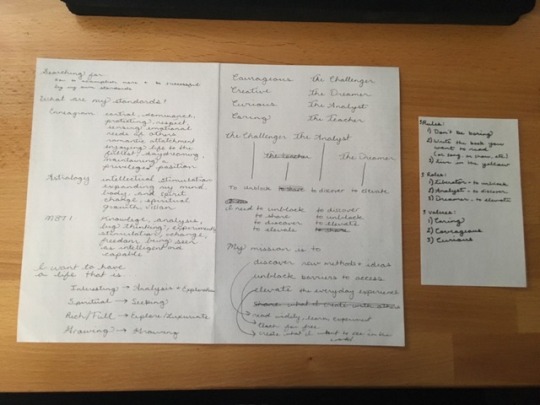 Searching for:
to be successful
by my own standards
What are my standards?
Enneagram social, dominance,
protecting, respect,
sensing emotional
needs of others
romantic attachment
enjoying life to the
fullest, daydreaming,
maintaining a
privileged position
Astrology intellectual stimulation
expanding my mind,
body, and spirit
change, spiritual
growth
MBTI Knowledge, analysis,
big thinking, experiments,
stimulation, change,
freedom, being seen
as intelligent and
capable
I want to have
a life that is:
Interesting → Analysis + Exploration
Spiritual → Seeking
Rich/Full → Explore/
Growing → Growing
Courageous the Challenger
Creative the Dreamer
Curious the Analyst
Caring the Teacher
the Challenger the Analyst
the Teacher the Dreamer
to unblock to share to discover to elevate
I need to unblock to discover
to share to unblock
to discover to elevate
to elevate to share
My mission is to
discover new methods + ideas
unblock barriers to access
elevate the everyday experience
share what I create with others
read widely, learn, experiment
for free
create what I want to see in the
world
Rules:
1) Don't be boring!
2) Write the book you
want to read!
(or song, or poem, etc.)
3) in the yellow
3 Roles:
1) Liberator - to unblock
2) Analyst - to discover
3) Dreamer - to elevate
3 values:
1) Caring
2) Courageous
3) Curious